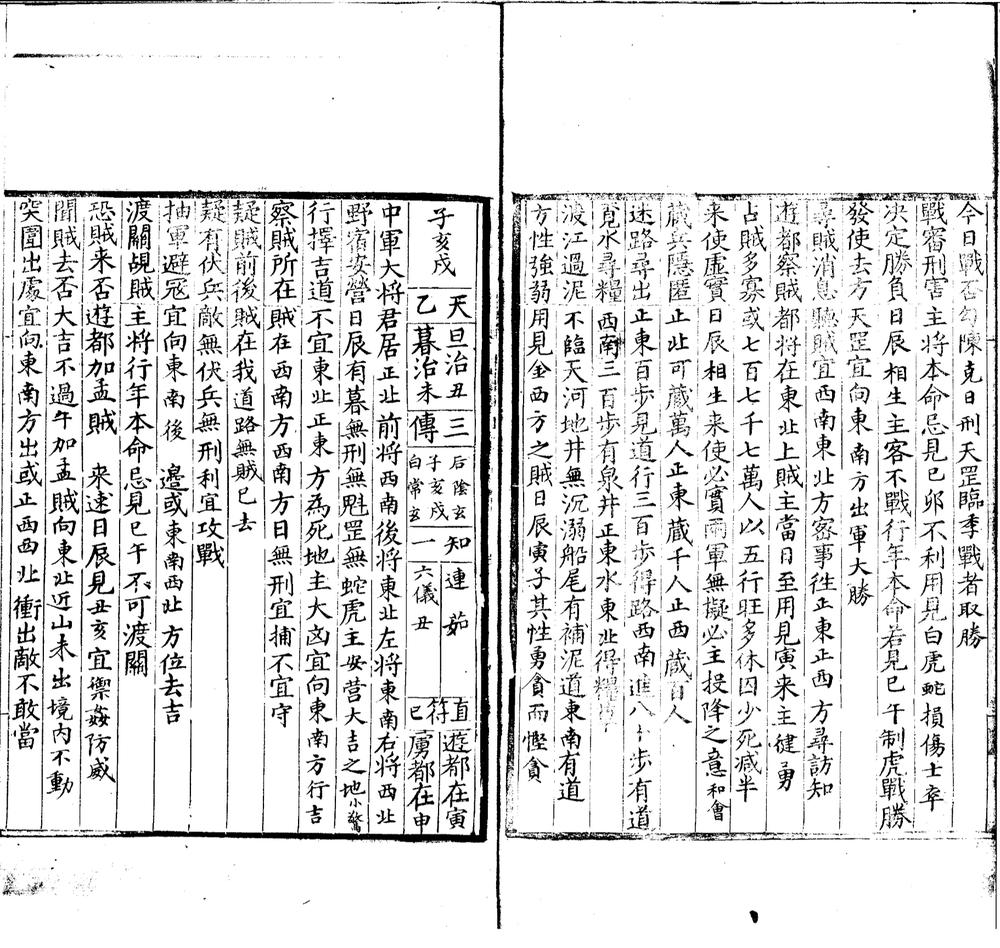 今日戰否勾陳克日刑天罡臨季戰者取勝
戰審刑害主將本命忌見巳卯不利用見白虎蛇損傷士卒
决定勝負日辰相生主客不戰行年本命若見巳午制虎戰勝
發使去方天罡宜向東南方出軍大勝
尋賊消息聽賊宜西南東北方密事徃正東正西方尋訪知
遊都察賊都將在東北上賊主當日至用見寅来主健勇
占賊多寡或七百七千七萬人以五行旺多休囚少死减半
来使虛實日辰相生来使必實兩軍無擬必主投降之意和會
藏兵隱匿正北可藏萬人正東藏千人正西藏百人
迷路尋出正東百步見道行三百步得路西南進八十步有道
覓水尋糧西南三百步有泉井正東水東北得糧
渡江過泥不臨天河地井無沉溺船尾有補泥道東南有道
方性強弱用見金西方之賊日辰寅子其性勇貪而慳貪
子亥戌
天乙
旦治丑
暮治未
三傳
后陰玄
子亥戌
白常玄
知一
連茹
六儀丑
直符巳
遊都在寅
虜都在申
中軍大将君居正北前将西南後将東北左将東南右将西北
野宿安營日辰有暮無刑無魁罡無蛇虎主安营大吉之地小驚
行擇吉道不宜東北正東方為死地主大凶宜向東南方行吉
察賊所在賊在西南方西南方日無刑宜捕不宜守
疑賊前後賊在我道路無賊已去
疑有伏兵敵無伏兵無刑利宜攻戰
抽軍避冦宜向東南後邉或東南西北方位去吉
渡關覘賊主将行年本命忌見巳午不可渡關
恐賊来否遊都加孟賊来速日辰見丑亥宜禦姦防威
聞賊去否大吉不過午加孟賊向東北近山未出境内不動
突圍出處宜向東南方出或正西西北衝出敵不敢當